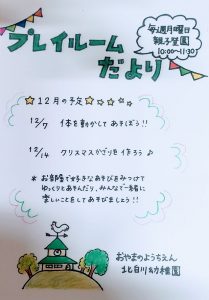 毎週月曜日
親子登園
10:00〜11:30
プレイルーム
だより
★12月の予定☆☆☆☆☆
12/7 体を動かして あそぼう!!
12/14 クリスマスかざりを作ろう♪
* お部屋で好きなあそびをみつけて
ゆっくりとあそんだり、みんなで一緒に
楽しいことをしてあそびましょう!!
おやまのようちえん
北白川幼稚園